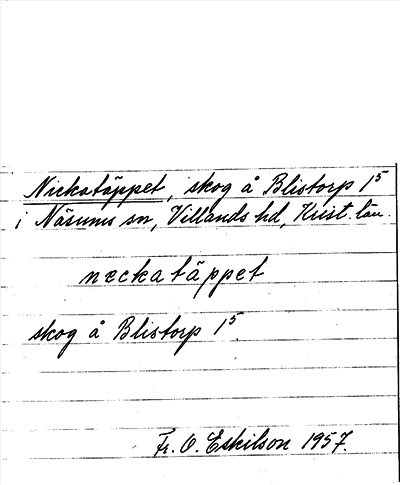 Nickatäppet, skog å Blistorp 1⁵
i Näsums sn, Villands hd, Krist. län.
neckatäppet
skog å Blistorp 1⁵
Fr. O. Eskilson 1957.